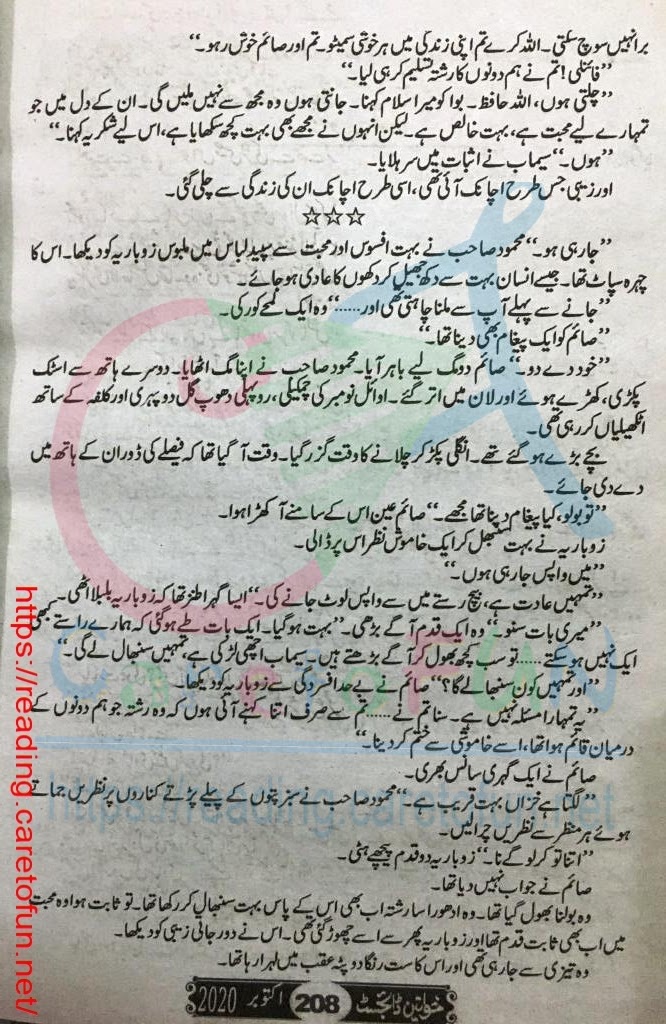 برا نہیں سوچ سکتی۔ اللہ کرے تم اپنی زندگی میں ہر خوشی سمیٹو۔ تم اور صائم خوش رہو۔“
”فائنلی! تم نے ہم دونوں کا رشتہ تسلیم کر ہی لیا۔“
”چلتی ہوں، اللہ حافظ۔ بوا کو میرا سلام کہنا۔ جانتی ہوں وہ مجھ سے نہیں ملیں گی۔ ان کے دل میں جو
تمہارے لیے محبت ہے، بہت خالص ہے۔ لیکن انہوں نے مجھے بھی بہت کچھ سکھایا ہے، اس لیے شکریہ کہنا۔“
”ہوں۔“ سیماب نے اثبات میں سر ہلایا۔
اور زیبی جس طرح اچانک آئی تھی، اسی طرح اچانک ان کی زندگی سے چلی گئی۔
☆☆☆
”جا رہی ہو۔“ محمود صاحب نے بہت افسوس اور محبت سے سپید لباس میں ملبوس زوباریہ کو دیکھا۔ اس کا
چہرہ سپاٹ تھا۔ جیسے انسان بہت سے دکھ جھیل کر دکھوں کا عادی ہو جائے۔
”جانے سے پہلے آپ سے ملنا چاہتی تھی اور……“ وہ ایک لمحے کو رکی۔
”صائم کو ایک پیغام بھی دینا تھا۔“
”خود دے دو۔“ صائم دو مگ لیے باہر آیا۔ محمود صاحب نے اپنا مگ اٹھایا۔ دوسرے ہاتھ سے اسٹک
پکڑی، کھڑے ہوئے اور لان میں اتر گئے۔ اوائل نومبر کی چمکیلی، روپہلی دھوپ گل دوپہری اور کلفہ کے ساتھ
اٹھیلیاں کر رہی تھی۔
بچے بڑے ہو گئے تھے۔ انگلی پکڑ کر چلانے کا وقت گزر گیا۔ وقت آ گیا تھا کہ فیصلے کی ڈور ان کے ہاتھ میں
دے دی جائے۔
”تو بولو، کیا پیغام دینا تھا مجھے۔“ صائم عین اس کے سامنے آ کھڑا ہوا۔
زوباریہ نے بہت سنبھل کر ایک خاموش نظر اس پر ڈالی۔
”میں واپس جا رہی ہوں۔“
”تمہیں عادت ہے، بیچ رستے میں سے واپس لوٹ جانے کی۔“ ایسا گہرا طنز تھا کہ زوباریہ بلبلا اٹھی۔
”میری بات سنو۔“ وہ ایک قدم آگے بڑھی۔ ”بہت ہو گیا۔ ایک بات طے ہو گئی کہ ہمارے راستے کبھی
ایک نہیں ہو سکتے…… تو سب کچھ بھول کر آگے بڑھتے ہیں۔ سیماب اچھی لڑکی ہے، تمہیں سنبھال لے گی۔“
”اور تمہیں کون سنبھالے گا؟“ صائم نے بے حد افسردگی سے زوباریہ کو دیکھا۔
”یہ تمہارا مسئلہ نہیں ہے۔ سنا تم نے…… تم سے صرف اتنا کہنے آئی ہوں کہ وہ رشتہ جو ہم دونوں کے
درمیان قائم ہوا تھا، اسے خاموشی سے ختم کر دینا۔“
صائم نے ایک گہری سانس بھری۔
”لگتا ہے خزاں بہت قریب ہے۔“ محمود صاحب نے سبز پتوں کے پیلے پڑتے کناروں پر نظریں جماتے
ہوئے ہر منظر سے نظریں چرا لیں۔
”اتنا تو کر لو گے نا۔“ زوباریہ دو قدم پیچھے ہٹی۔
صائم نے جواب نہیں دیا تھا۔
وہ بولنا بھول گیا تھا۔ وہ ادھورا سا رشتہ اب بھی اس کے پاس بہت سنبھال کر رکھا تھا۔ تو ثابت ہوا وہ محبت
میں اب بھی ثابت قدم تھا اور زوباریہ پھر سے اسے چھوڑ گئی تھی۔ اس نے دور جاتی زیبی کو دیکھا۔
وہ تیزی سے جا رہی تھی اور اس کا ست رنگا دوپٹہ عقب میں لہرا رہا تھا۔
خواتین ڈائجسٹ 208 اکتوبر 2020
https://reading.caretofun.net/
https://reading.caretofun.net